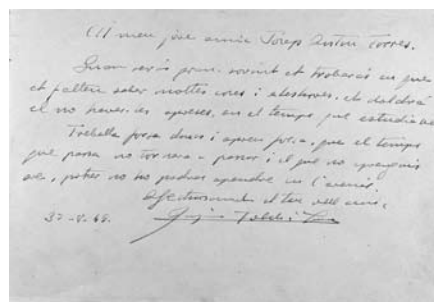 Al meu jove amic Josep Anton Torres.
Quan seràs gran, sovint et trobaràs en que
et falten saber moltes coses i aleshores, et doldrà
el no haver-les apreses, en el temps que estudiaves
Treballa força doncs i apren força, que el temps
que passa no tornarà a passar i el que no aprenguis
ara, potser no ho podras apendre en l'avenir.
Afectuosament el teu vell amic,
-V-69.